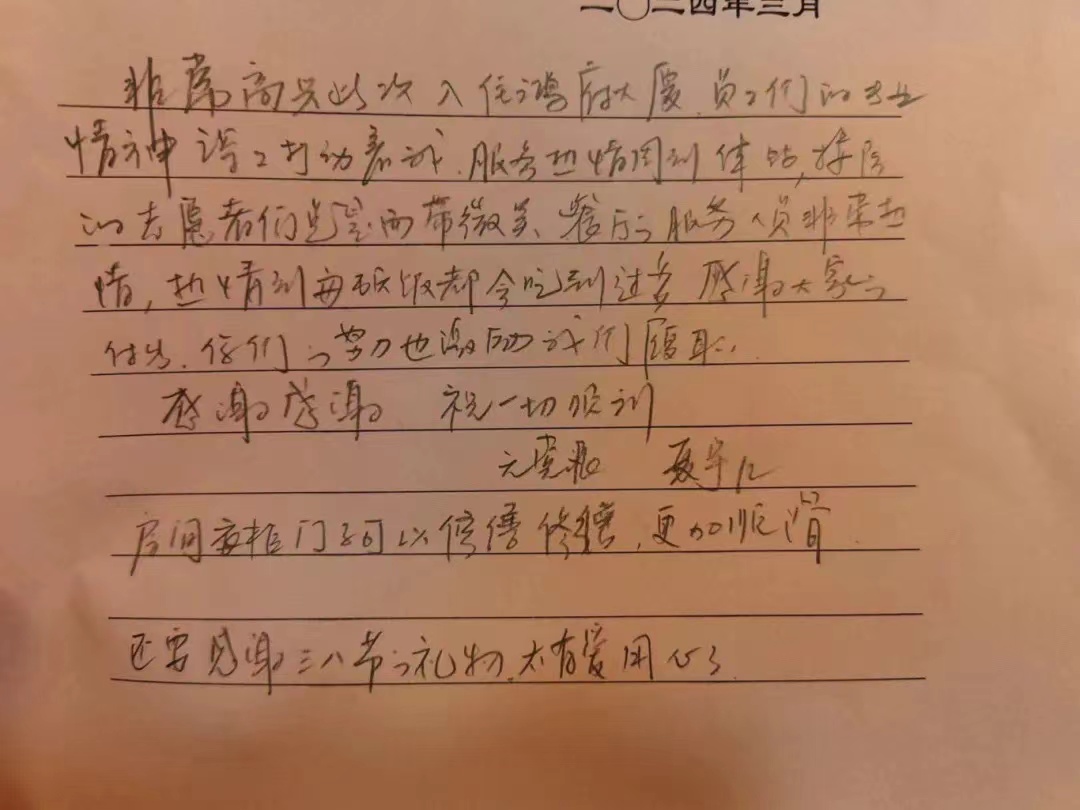 二〇二四年三月
非常高兴此次入住鸿府大厦.员工们的专业
精神深深打动着我.服务热情周到体贴,接待
的志愿者们总是面带微笑、餐厅的服务人员非常热
情,热情到每顿饭都会吃到过多 感谢大家的
付出.你们的努力也激励我们履职.
感谢感谢 祝一切顺利
房间衣柜门子可以修缮修缮,更加顺滑.
还要感谢三八节的礼物.太有爱用心了.